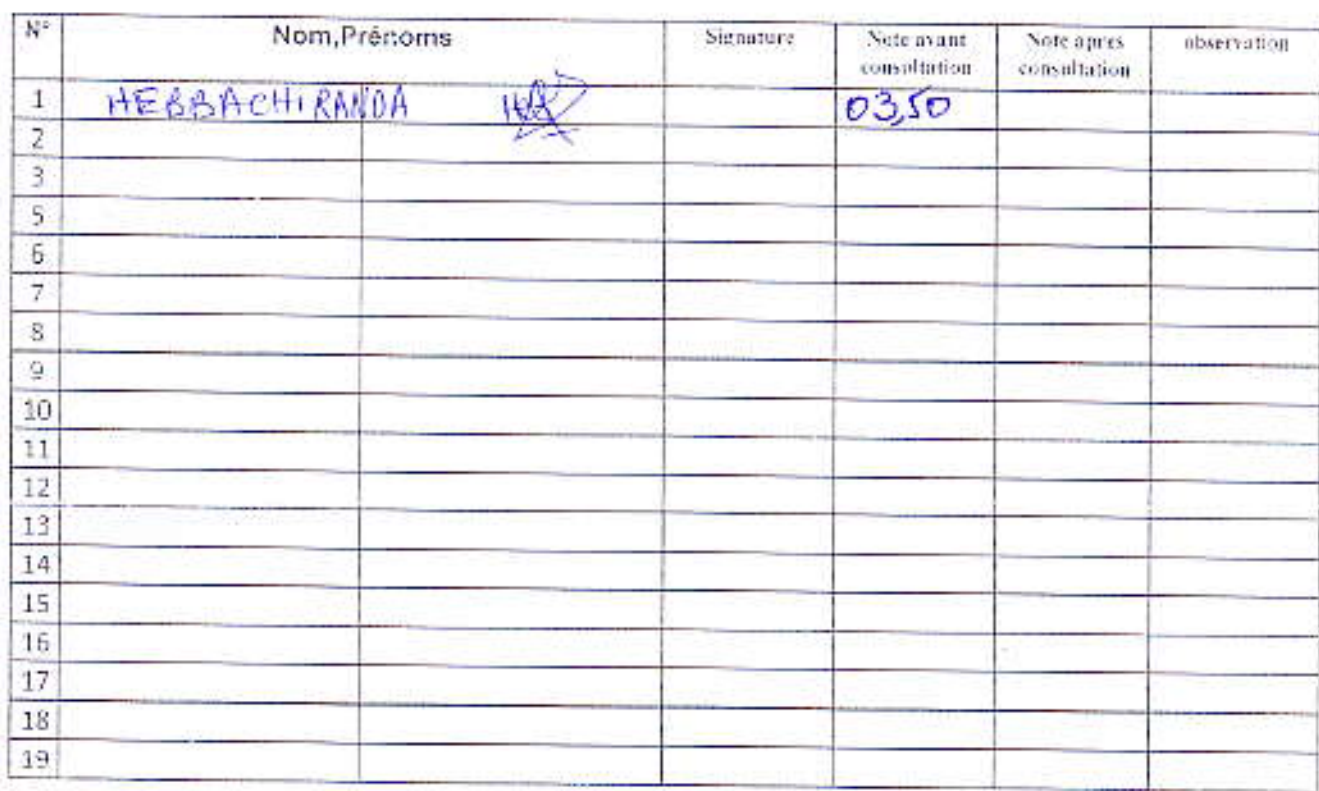 N° Nom,Prénoms Signature Note avant consultation Note apres consultation observation
1 HEBBACHI RANDA 03,50
2
3
5
6
7
8
9
10
11
12
13
14
15
16
17
18
19